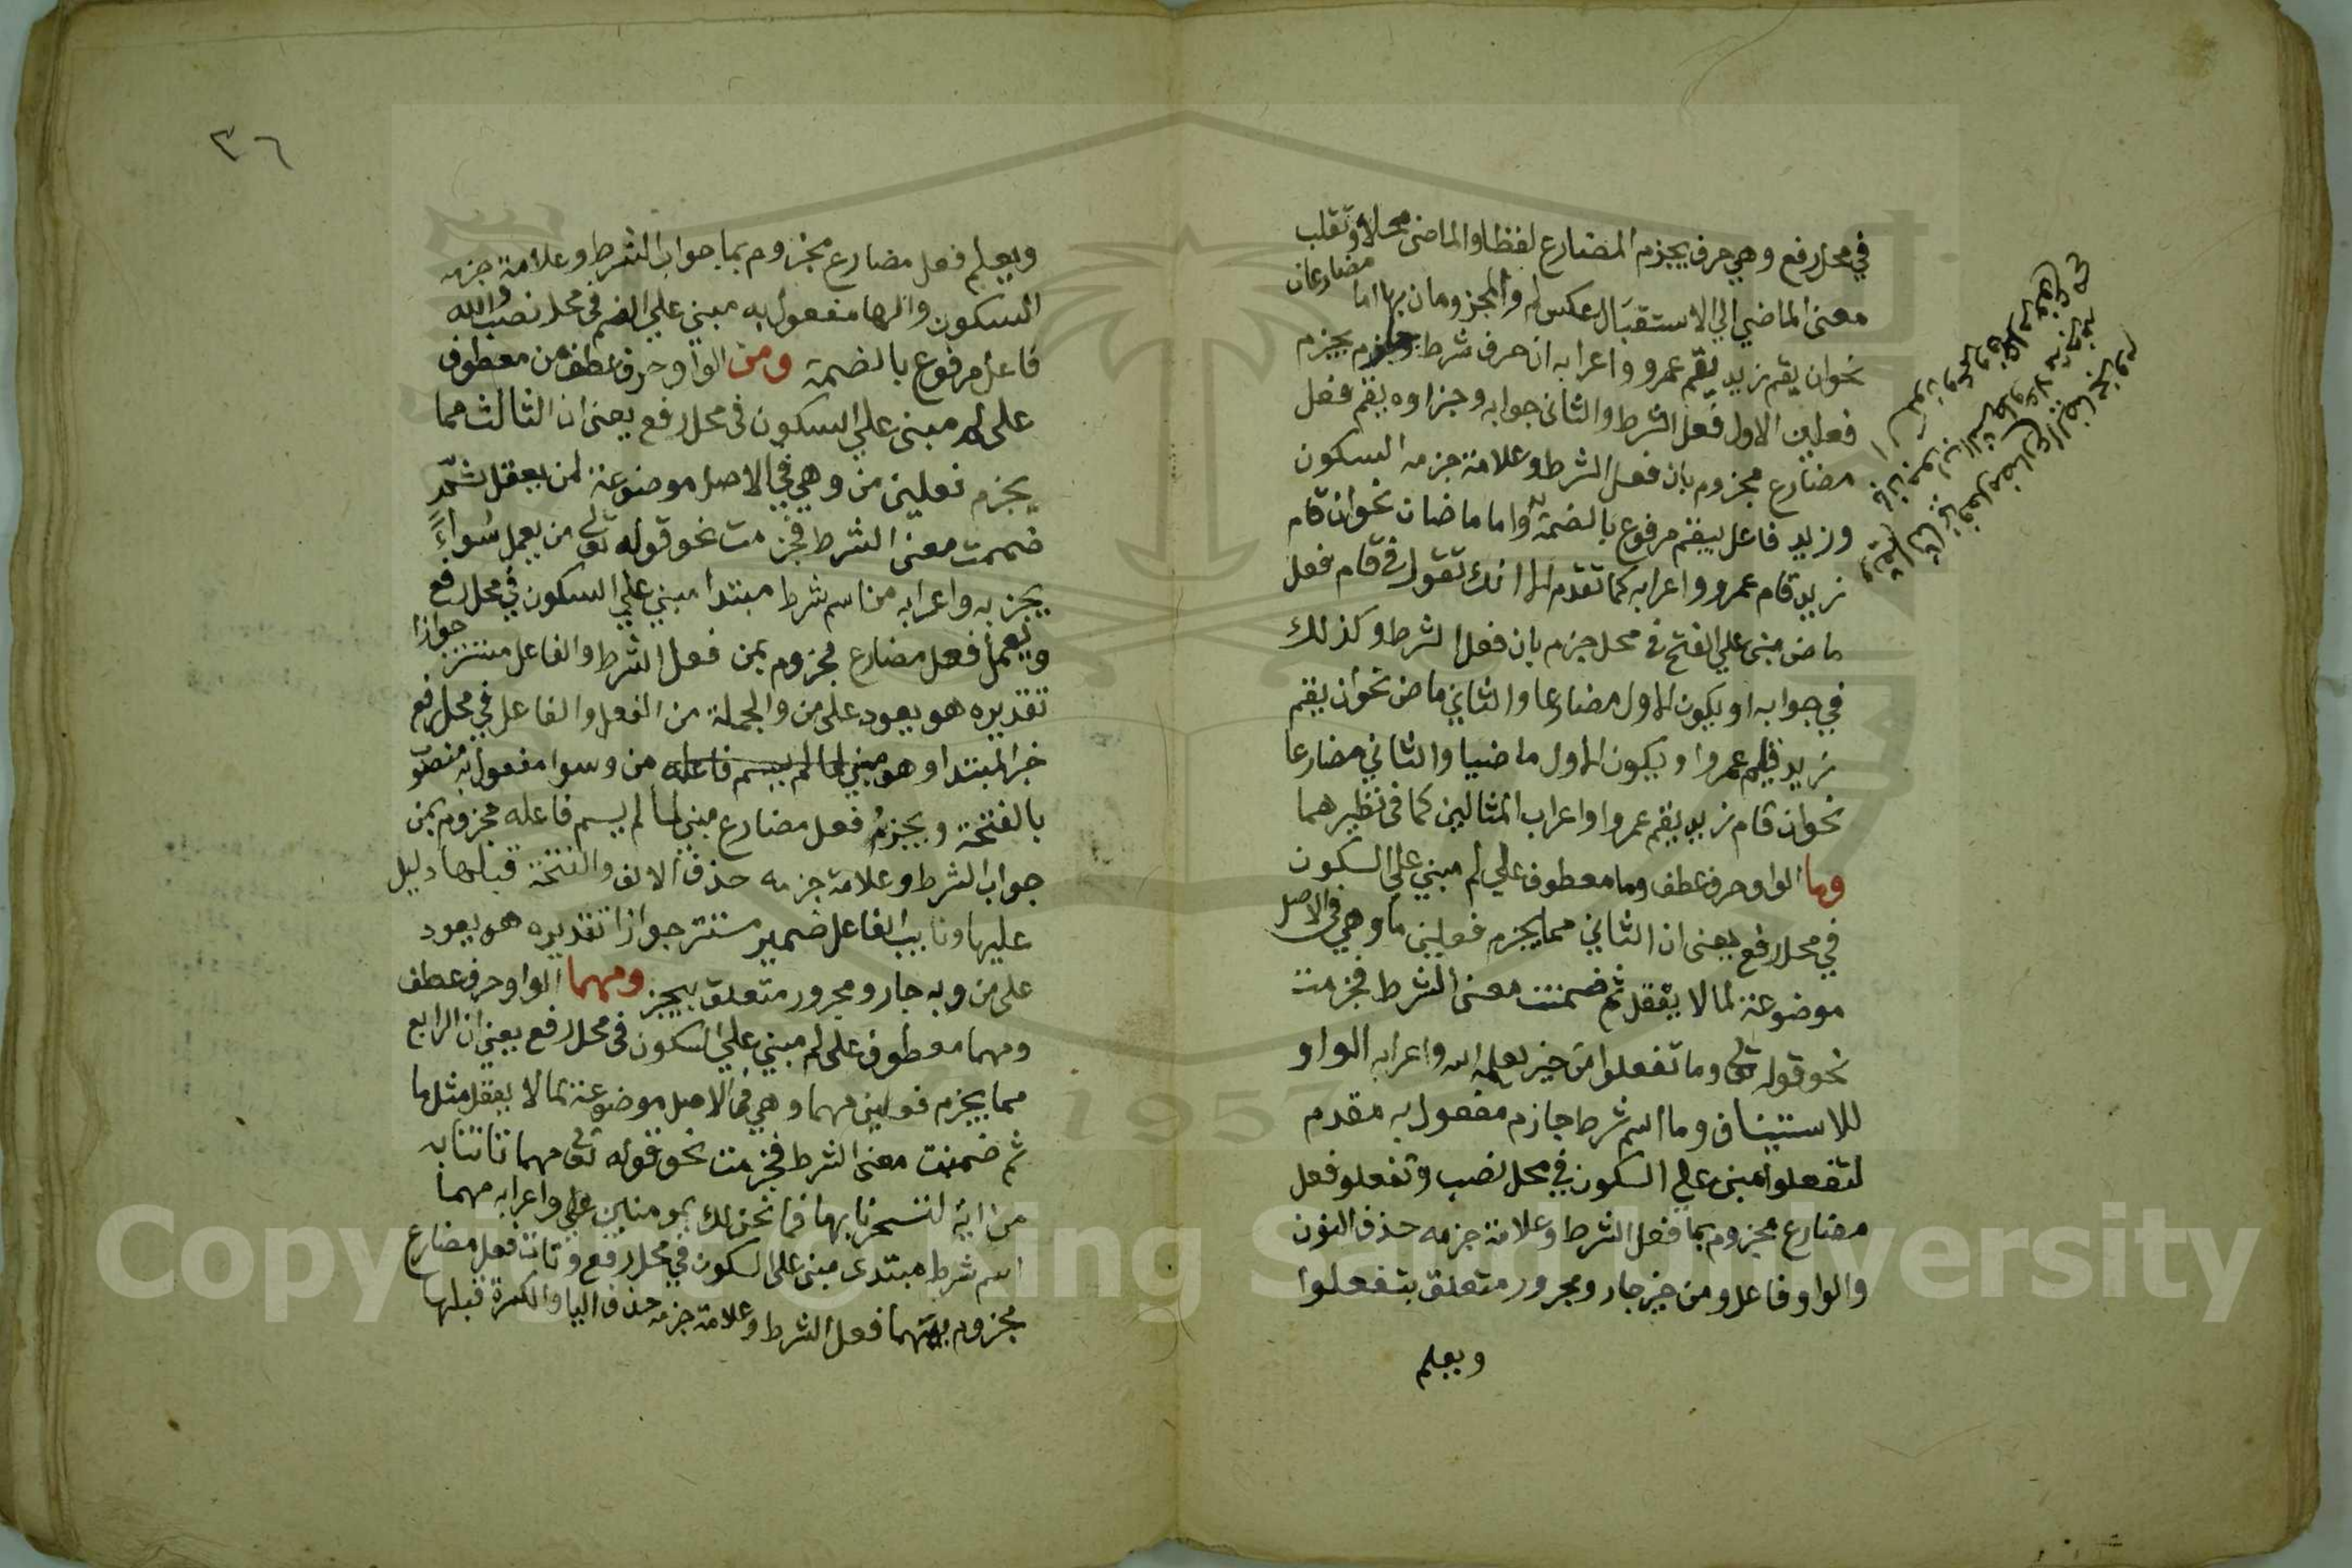 في محل رفع وهي حرف يجزم المضارع لفظا والماضي محلا وتقلب
معنى الماضي الي الاستقبال عكس لم والمجزومان بها اما مضارعان
نحو ان يقم زيد يقم عمرو واعرابه ان حرف شرط جازم يجزم
فعلين الاول فعل الشرط والثاني جوابه وجزاوه يقم فعل
مضارع مجزوم بان فعل الشرط وعلامة جزمه السكون
وزيد فاعل بيقم مرفوع بالضمة واما ماضيان نحو ان قام
زيد قام عمرو واعرابه كما تقدم الا انك تقول في قام فعل
ماض مبني علي الفتح في محل جزم بان فعل الشرط وكذلك
في جوابه او يكون الاول مضارعا والثاني ماض نحو ان يقم
زيد قام عمرو او يكون الاول ماضيا والثاني مضارعا
نحو ان قام زيد يقم عمروا واعراب المثالين كما في نظيرهما
وما الواو حرف عطف وما معطوف علي لم مبني علي السكون
في محل رفع يعني ان الثاني مما يجزم فعلين ما وهي في الاصل
موضوعة لما لا يعقل ثم ضمنت معنى الشرط فجزمت
نحو قوله تعالى وما تفعلوا من خير يعلمه الله واعرابه الواو
للاستيناف وما اسم شرط جازم مفعول به مقدم
لتفعلوا مبني علي السكون في محل نصب وتفعلو فعل
مضارع مجزوم بما فعل الشرط وعلامة جزمه حذف النون
والواو فاعل ومن خير جار ومجرور متعلق بتفعلوا
ويعلم
٣٦
ويعلم فعل مضارع مجزوم بما جواب الشرط وعلامة جزمه
السكون والها مفعول به مبني علي الضم في محل نصب والله
فاعل مرفوع بالضمة ومن الواو حرف عطف من معطوف
على لم مبني علي السكون في محل رفع يعني ان الثالث مما
يجزم فعلين من وهي في الاصل موضوعة لمن يعقل ثم
ضمنت معنى الشرط فجزمت نحو قوله تعالى من يعمل سواءً
يجز به واعرابه من اسم شرط مبتدا مبني علي السكون في محل رفع
ويعمل فعل مضارع مجزوم بمن فعل الشرط والفاعل مستتر جوازا
تقديره هو يعود على من والجملة من الفعل والفاعل في محل رفع
خبر المبتدا وهو مبني لما لم يسم فاعله من وسوا مفعول به منصوب
بالفتحة ويجزم فعل مضارع مبني لما لم يسم فاعله مجزوم بمن
جواب الشرط وعلامة جزمه حذف الالف والفتحة قبلها دليل
عليها ونايب الفاعل ضمير مستتر جوازا تقديره هو يعود
على من وبه جار ومجرور متعلق بيجز ومهما الواو حرف عطف
ومهما معطوف على لم مبني علي السكون في محل رفع يعني ان الرابع
مما يجزم فعلين مهما وهي في الاصل موضوعة لما لا يعقل مثل ما
ثم ضمنت معنى الشرط فجزمت نحو قوله تعالى مهما تاتنا به
من اية لتسحرنا بها فما نحن لك بمومنين واعرابه مهما
اسم شرط مبتدى مبني على السكون في محل رفع وتات فعل مضارع
مجزوم بمهما فعل الشرط وعلامة جزمه حذف اليا والكسرة قبلها
Copyright © King Saud University
1957